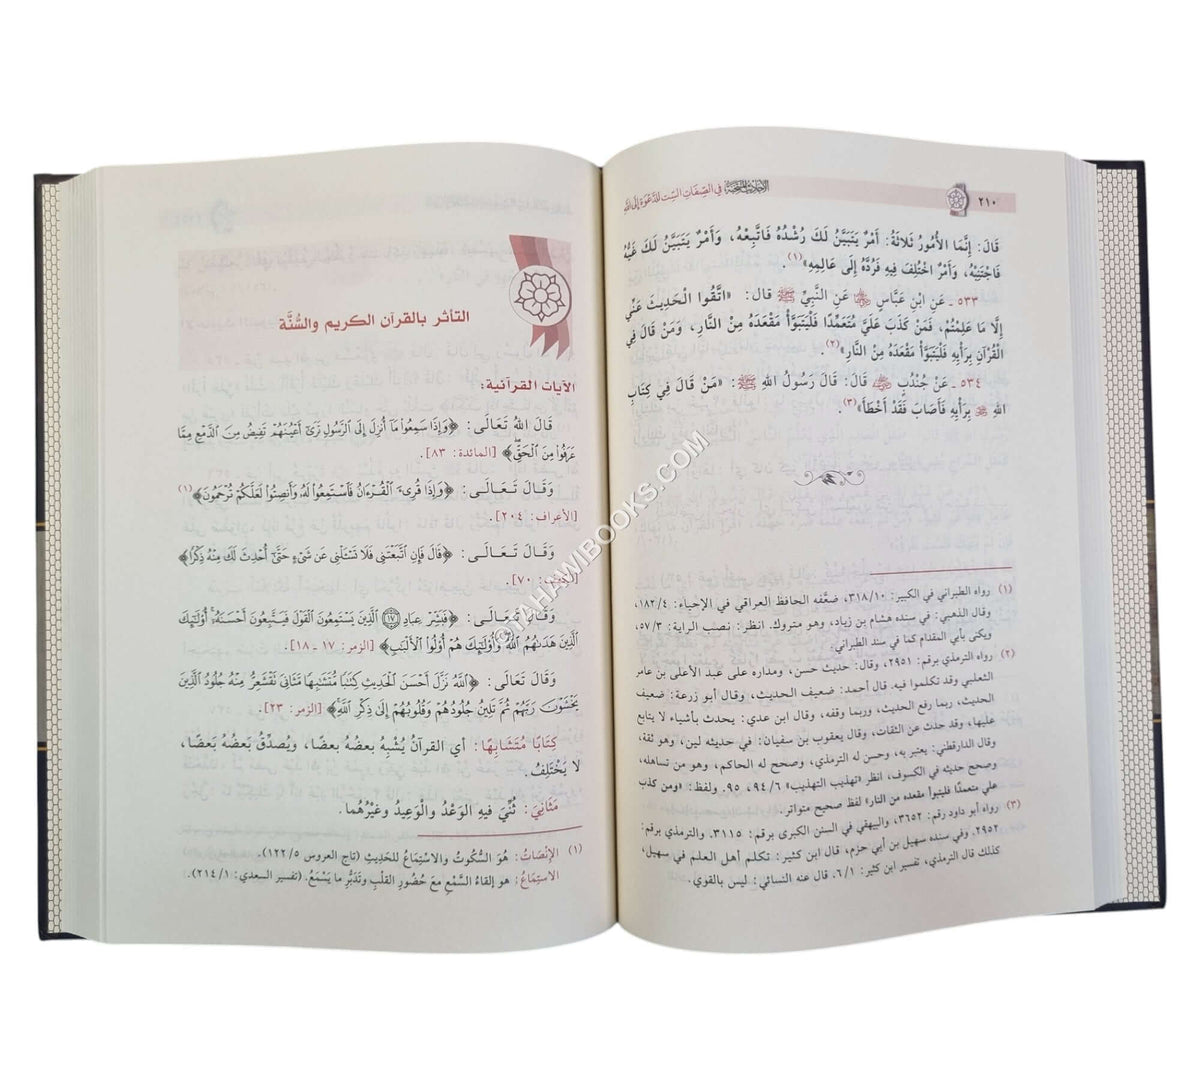 ٢١٠
الأحاديث المنتخبة في الصفات الست للدعوة إلى الله
قَالَ: إِنَّمَا الأُمُورُ ثَلَاثَةٌ: أَمْرٌ يَتَبَيَّنُ لَكَ رُشْدُهُ فَاتَّبِعْهُ، وَأَمْرٌ يَتَبَيَّنُ لَكَ غَيُّهُ
فَاجْتَنِبْهُ، وَأَمْرٌ اخْتُلِفَ فِيهِ فَرُدَّهُ إِلَى عَالِمِهِ»(١).
٥٣٣ ـ عَنِ ابْنِ عَبَّاسٍ ﵄ عَنِ النَّبِيِّ ﷺ قال: «اتَّقُوا الْحَدِيثَ عَنِّي
إِلَّا مَا عَلِمْتُمْ، فَمَنْ كَذَبَ عَلَيَّ مُتَعَمِّدًا فَلْيَتَبَوَّأْ مَقْعَدَهُ مِنَ النَّارِ، وَمَنْ قَالَ فِي
الْقُرْآنِ بِرَأْيِهِ فَلْيَتَبَوَّأْ مَقْعَدَهُ مِنَ النَّارِ»(٢).
٥٣٤ ـ عَنْ جُنْدُبٍ ﵁ قَالَ: قَالَ رَسُولُ اللهِ ﷺ: «مَنْ قَالَ فِي كِتَابِ
اللهِ ﷻ بِرَأْيِهِ فَأَصَابَ فَقَدْ أَخْطَأَ»(٣).
(١) رواه الطبراني في الكبير: ٣١٨/١٠، ضعَّفه الحافظ العراقي في الإحياء: ١٨٢/٤،
وقال الذهبي: في سنده هشام بن زياد، وهو متروك. انظر: نصب الراية: ٥٧/٣،
ويكنى بأبي المقدام كما في سند الطبراني.
(٢) رواه الترمذي برقم: ٢٩٥١، وقال: حديث حسن، ومداره على عبد الأعلى بن عامر
الثعلبي وقد تكلموا فيه. قال أحمد: ضعيف الحديث، وقال أبو زرعة: ضعيف
الحديث، ربما رفع الحديث، وربما وقفه، وقال ابن عدي: يحدث بأشياء لا يتابع
عليها، وقد حدث عن الثقات، وقال يعقوب بن سفيان: في حديثه لين، وهو ثقة،
وقال الدارقطني: يعتبر به، وحسن له الترمذي، وصحح له الحاكم، وهو من تساهله،
وصحح حديثه في الكسوف، انظر «تهذيب التهذيب» ٩٤/٦، ٩٥. ولفظ: «ومن كذب
علي متعمدًا فليتبوأ مقعده من النار» لفظ صحيح متواتر.
(٣) رواه أبو داود رقم: ٣٦٥٢، والبيهقي في السنن الكبرى برقم: ٣١١٥. والترمذي برقم:
٢٩٥٢. وفي سنده سهيل بن أبي حزم، قال ابن كثير: تكلم أهل العلم في سهيل،
كذلك قال الترمذي، تفسير ابن كثير: ٦/١، قال عنه النسائي: ليس بالقوي.
التأثر بالقرآن الكريم والسُّنَّة
الآيات القرآنية:
قَالَ اللهُ تَعَالَى: ﴿وَإِذَا سَمِعُوا۟ مَآ أُنزِلَ إِلَى ٱلرَّسُولِ تَرَىٰٓ أَعْيُنَهُمْ تَفِيضُ مِنَ ٱلدَّمْعِ مِمَّا
عَرَفُوا۟ مِنَ ٱلْحَقِّ﴾ [المائدة: ٨٣].
وَقَالَ تَعَالَى: ﴿وَإِذَا قُرِئَ ٱلْقُرْءَانُ فَٱسْتَمِعُوا۟ لَهُۥ وَأَنصِتُوا۟ لَعَلَّكُمْ تُرْحَمُونَ﴾(١)
[الأعراف: ٢٠٤].
وَقَالَ تَعَالَى: ﴿قَالَ فَإِنِ ٱتَّبَعْتَنِى فَلَا تَسْـَٔلْنِى عَن شَىْءٍ حَتَّىٰٓ أُحْدِثَ لَكَ مِنْهُ ذِكْرًا﴾
[الكهف: ٧٠].
وَقَالَ تَعَالَى: ﴿فَبَشِّرْ عِبَادِ ١٧ ٱلَّذِينَ يَسْتَمِعُونَ ٱلْقَوْلَ فَيَتَّبِعُونَ أَحْسَنَهُۥٓ أُو۟لَٰٓئِكَ
ٱلَّذِينَ هَدَىٰهُمُ ٱللَّهُ وَأُو۟لَٰٓئِكَ هُمْ أُو۟لُوا۟ ٱلْأَلْبَٰبِ﴾ [الزمر: ١٧ ـ ١٨].
وَقَالَ تَعَالَى: ﴿ٱللَّهُ نَزَّلَ أَحْسَنَ ٱلْحَدِيثِ كِتَٰبًا مُّتَشَٰبِهًا مَّثَانِىَ تَقْشَعِرُّ مِنْهُ جُلُودُ ٱلَّذِينَ
يَخْشَوْنَ رَبَّهُمْ ثُمَّ تَلِينُ جُلُودُهُمْ وَقُلُوبُهُمْ إِلَىٰ ذِكْرِ ٱللَّهِ﴾ [الزمر: ٢٣].
كِتَابًا مُتَشَابِهًا: أي القرآنُ يُشْبِهُ بعضُهُ بعضًا، ويُصدِّقُ بَعضُهُ بَعضًا،
لا يَخْتَلِفُ.
مَثَانِيَ: ثُنِّيَ فيهِ الوَعْدُ والْوَعِيدُ وغيْرُهُما.
(١) الإِنْصَاتُ: هُوَ السُّكُوتُ والاسْتِمَاعُ للحَدِيثِ (تاج العروس ١٢٢/٥).
الاستِمَاعُ: هو إلقاءُ السَّمْعِ مَعَ حُضُورِ القَلْبِ وتَدَبُّرِ ما يَسْمَعُ. (تفسير السعدي: ٢١٤/١).
©TAHAWIBOOKS.COM